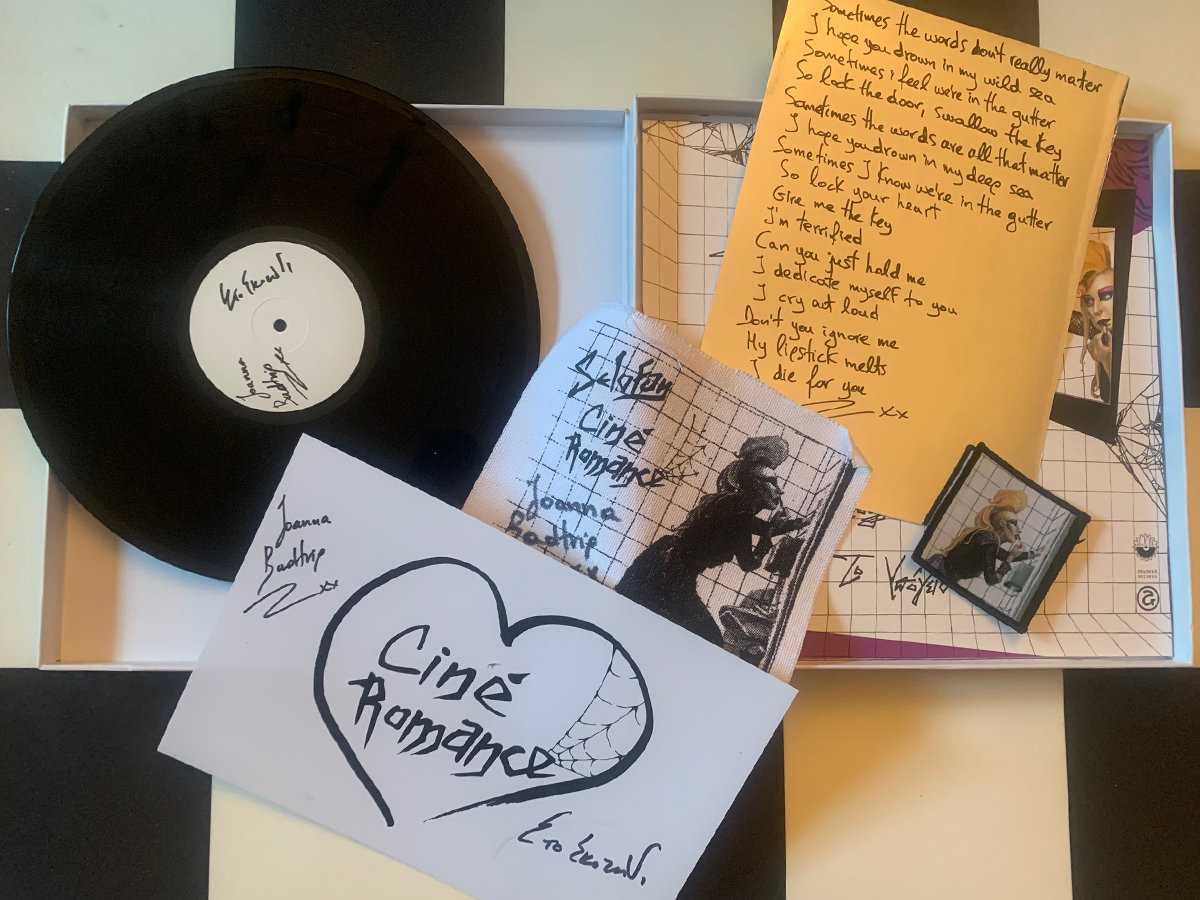 Sometimes the words don't really matter
I hope you drown in my wild sea
Sometimes i feel we're in the gutter
So lock the door, swallow the key
Sometimes the words are all that matter
I hope you drown in my deep sea
Sometimes I know we're in the gutter
So lock your heart
Give me the key
I'm terrified
Can you just hold me
I dedicate myself to you
I cry out loud
Don't you ignore me
My lipstick melts
I die for you
xx
Joanna
Badtrip
Selofan
Ciné
Romance
Joanna
Badtrip
Joanna
Badtrip
xx
Ciné
Romance